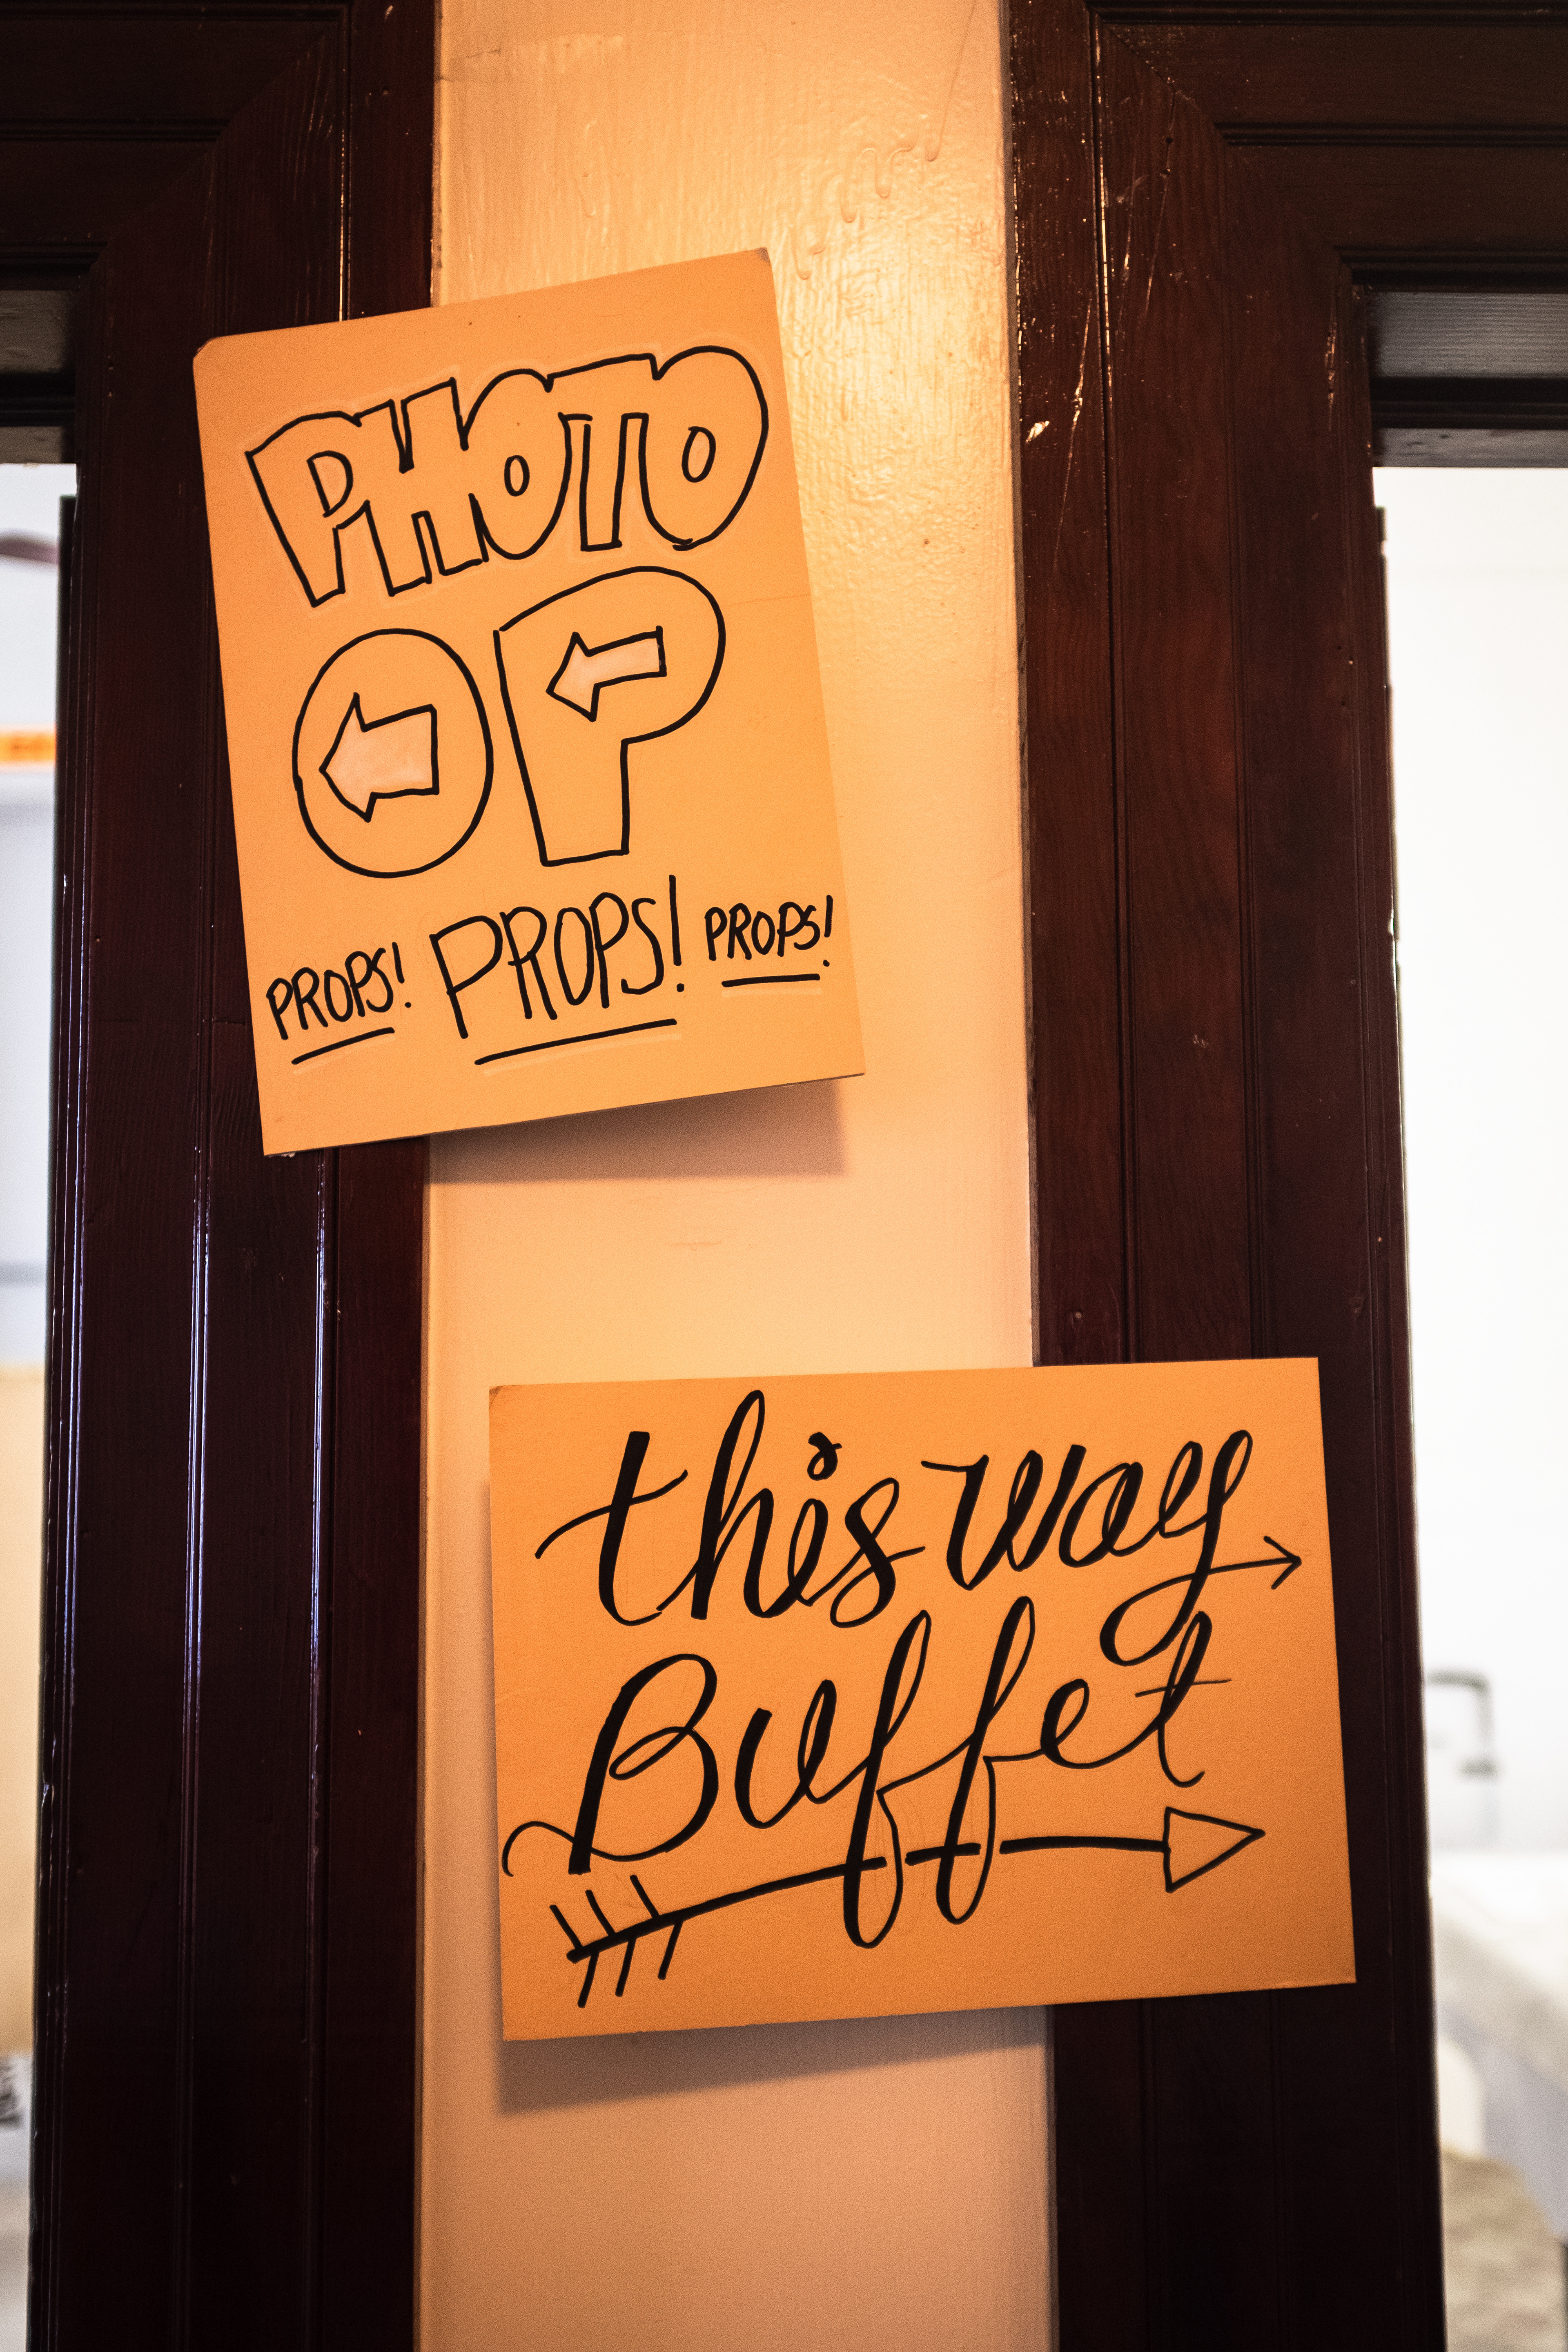 PHOTO
OP
PROPS! PROPS! PROPS!
this way
Buffet